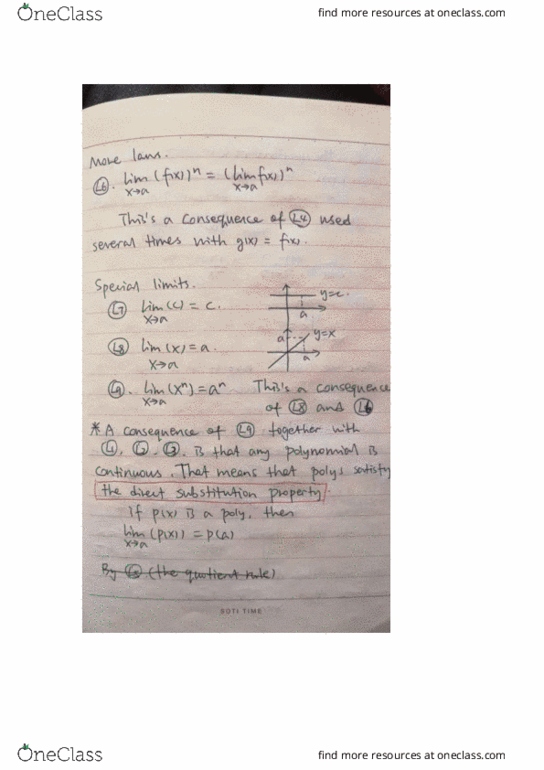 OneClass
find more resources at oneclass.com
More laws.
L6. lim (f(x))ⁿ = (lim f(x))ⁿ
x→a x→a
This's a consequence of L4 used
several times with g(x) = f(x).
Special limits.
L7 lim (c) = c.
x→a
y=c.
a
L8 lim (x) = a.
x→a
a
y=x
a
L9. lim (xⁿ) = aⁿ This's a consequence
x→a
of L8 and L6
* A consequence of L9 together with
L1, L2, L3, is that any polynomial is
continuous. That means that polys satisfy
the direct substitution property.
If p(x) is a poly, then
lim (p(x)) = p(a)
x→a
By L5 (the quotient rule)
SOTI TIME
OneClass
find more resources at oneclass.com